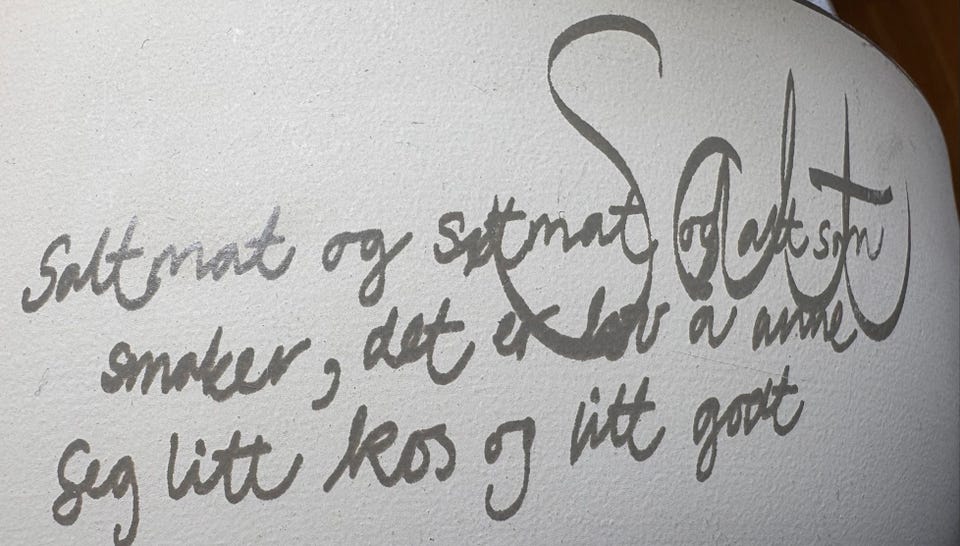 Salt
Saltmat og søtmat og alt som
smaker, det er lov å unne
seg litt kos og litt godt